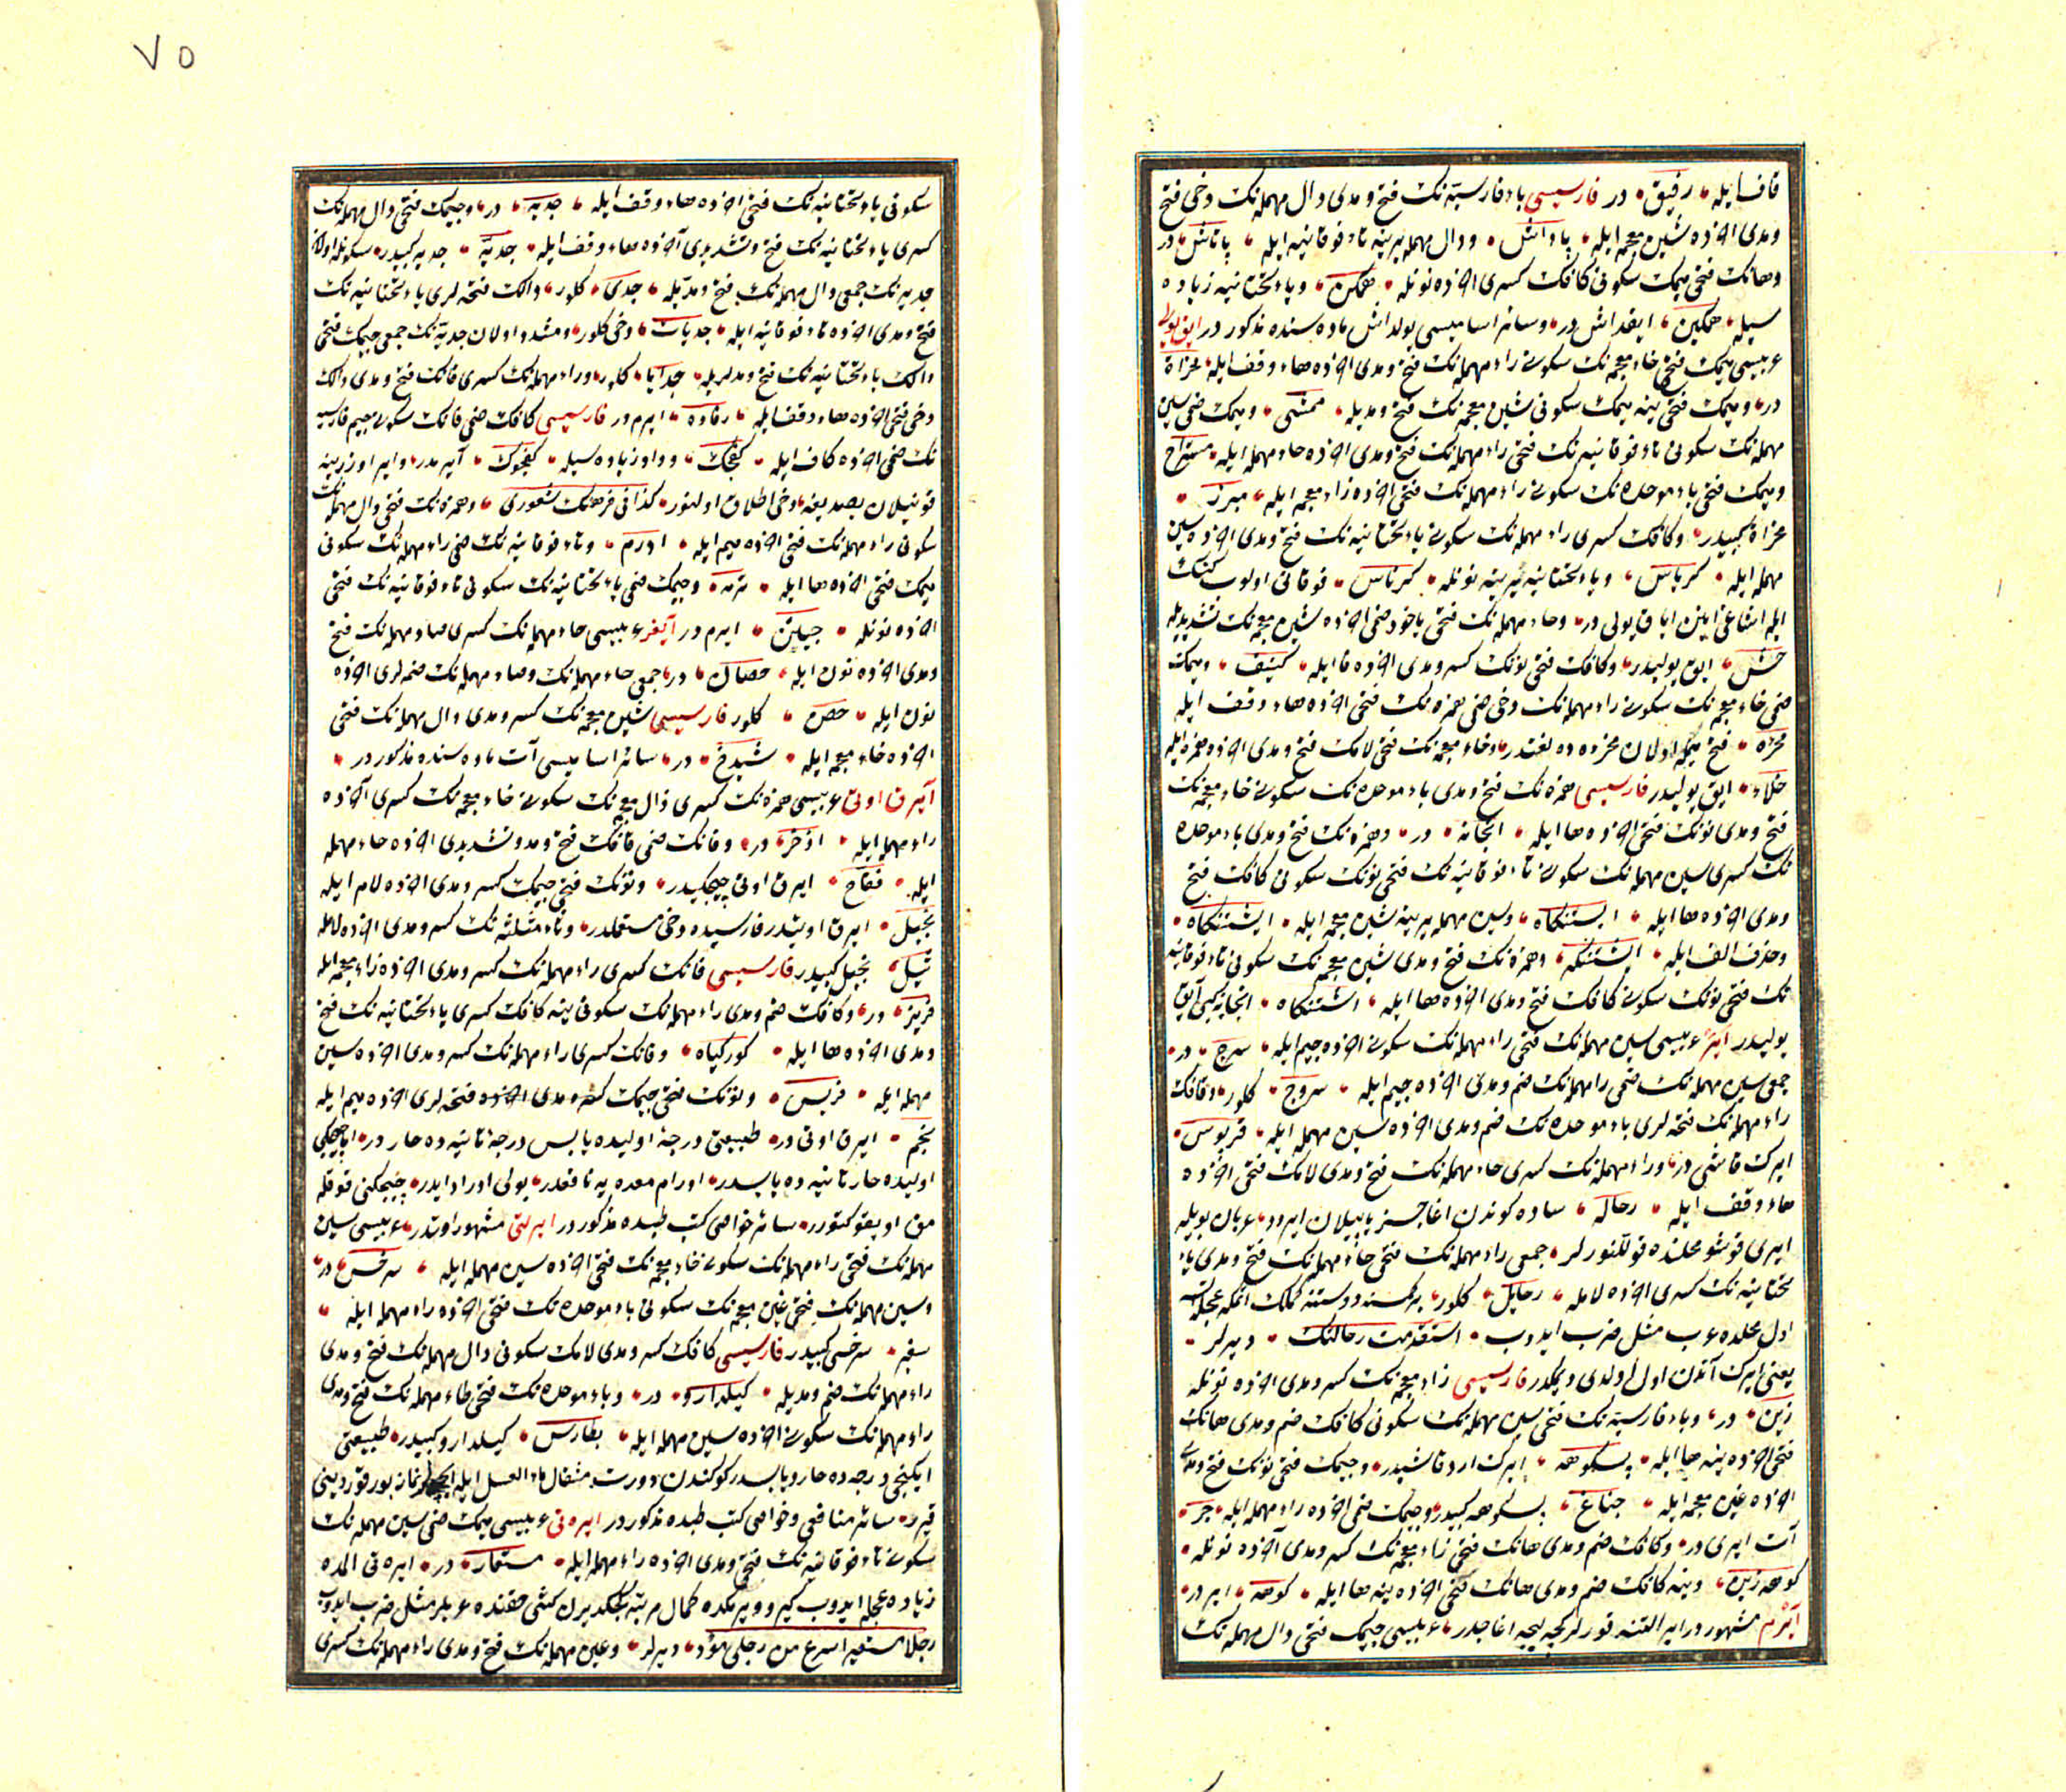 قاف ایله رفیق در فارسیسی باء فارسیه نک فتح و مدی دال مهمله نک دخی فتح
و مدی اخرده شین معجمه ایله پاداش و دال مهمله یرینه تاء فوقانیه ایله پاتاش در
و هانک فتحی میمک سکونی کافک کسری اخرده نونله همکن و یاء تحتانیه زیاده
سیله همکین ایقداش در و سائر اسامیسی یولداش ماده سنده مذکور در ایق یولی
عربیسی میمک فتحی خاء معجمه نک سکونی راء مهمله نک فتح و مدی اخرده هاء وقف ایله مخراة
در و میمک فتحی ینه میمک سکونی شین معجمه نک فتح و مدیله ممشی و میمک ضمی سین
مهمله نک سکونی تاء فوقانیه نک فتحی راء مهمله نک فتح و مدی اخرده حاء مهمله ایله مستراح
و میمک فتحی باء موحده نک سکونی راء مهمله نک فتحی اخرده زاء معجمه ایله مبرز
مخراة کبیدر و کافک کسری راء مهمله نک سکونی یاء تحتانیه نک فتح و مدی اخرده سین
مهمله ایله کریاس و یاء تحتانیه یرینه نونله کرناس فوقانی اولوب کنک
ایله اشاغی اینن ایاق یولی در و حاء مهمله نک فتحی یاخود ضمی اخرده شین معجمه نک تشدیدیله
حش ایوق یولیدر و کافک فتحی نونک کسر و مدی اخرده فا ایله کنیف و میمک
ضمی خاء معجمه نک سکونی راء مهمله نک دخی ضمی همزه نک فتحی اخرده هاء وقف ایله
مخرؤه فتح میمله اولان مخرءه ده لغتدر و خاء معجمه نک فتحی لامک فتح و مدی اخرده همزه ایله
خلاء ایق یولیدر فارسیسی همزه نک فتح و مدی باء موحده نک سکونی خاء معجمه نک
فتح و مدی نونک فتحی اخرده ها ایله ابخانه در و همزه نک فتح و مدی باء موحده
نک کسری سین مهمله نک سکونی تاء فوقانیه نک فتحی نونک سکونی کافک فتح
و مدی اخرده ها ایله ابستنکاه و سین مهمله یرینه شین معجمه ایله ابشتنکاه
و حذف الف ایله ابشتنکه و همزه نک فتح و مدی شین معجمه نک سکونی تاء فوقانیه
نک فتحی نونک سکونی کافک فتح و مدی اخرده ها ایله اشتنکاه ابخانه کبی آیق
یولیدر ایر عربیسی سین مهمله نک فتحی راء مهمله نک سکونی اخرده جیم ایله سرج در
جمعی سین مهمله نک ضمی را مهمله نک ضم و مدی اخرده جیم ایله سروج کلور و قافک
راء مهمله نک فتحه لری باء موحده نک ضم و مدی اخرده سین مهمله ایله قربوس
ایرک قاشی در و راء مهمله نک کسری حاء مهمله نک فتح و مدی لامک فتحی اخرده
هاء وقف ایله رحاله ساده کوندن اغاجسز یاپیلان ایردر عربان بویله
ایری قوشو محلنده قوللنورلر جمعی راء مهمله نک فتحی حاء مهمله نک فتح و مدی یاء
تحتانیه نک کسری اخرده لامله رحایل کلور
اول محلده عرب مثل ضرب ایدوب استقدمت رحالتک دیرلر
یعنی ایرک آتدن اول اولدی دیمکدر فارسیسی زاء معجمه نک کسر و مدی اخرده نونله
زین در و باء فارسیه نک فتحی سین مهمله نک سکونی کافک ضم و مدی هانک
فتحی اخرده ینه ها ایله پسکوهه ایرک ارد قاشیدر و جیمک فتحی نونک فتح و مدی
اخرده غین معجمه ایله جناغ پسکوهه کبیدر و جیمک فتحی اخرده راء مهمله ایله جر
آت ایری در و کافک ضم و مدی هانک فتحی زاء معجمه نک کسر و مدی آخرده نونله
کوهه زین و ینه کافک ضم و مدی هانک فتحی اخرده ینه ها ایله کوهه ایر در
آیرم مشهور در ایر التنه قورلر کچه اغاجلدر عربیسی جیمک فتحی دال مهمله نک
۷۵
سکونی یاء تحتانیه نک فتحی اخرده هاء وقف ایله جدیه در و جیمک فتحی دال مهمله نک
کسری یاء تحتانیه نک فتح و تشدیدی آخرده هاء وقف ایله جدیه جدیه کبیدر سکونله اولان
جدیه نک جمعی دال مهمله نک فتح و مدیله جدی کلور دالک فتحه لری یاء تحتانیه نک
فتح و مدی اخرده تاء فوقانیه ایله جدیات دخی کلور و مشدد اولان جدیه نک جمعی جیمک فتحی
دالک یاء تحتانیه نک فتح و مدلریله جدایا کلور و راء مهمله نک کسری فانک فتح و مدی دالک
دخی فتحی اخرده هاء وقف ایله رفاده ایرم در فارسیسی کافک ضمی فانک سکونی جیم فارسیه
نک ضمی اخرده کاف ایله کفچک و واو زیاده سیله کفچوک آیرمدر و ایر اوزرینه
قونیلان یصدیغه دخی اطلاق اولنور کذا فی فرهنک شعوری و همزه نک فتحی دال مهمله نک
سکونی راء مهمله نک فتحی اخرده میم ایله ادرم و تاء فوقانیه نک ضمی راء مهمله نک سکونی
میمک فتحی اخرده ها ایله ترمه و جیمک ضمی یاء تحتانیه نک سکونی تاء فوقانیه نک فتحی
اخرده نونله ایرم در آیغر عربیسی حاء مهمله نک کسری صاد مهمله نک فتح
و مدی اخرده نون ایله حصان در جمعی حاء مهمله نک و صاد مهمله نک ضمه لری اخرده
نون ایله حصن کلور فارسیسی شین معجمه نک کسر و مدی دال مهمله نک فتحی
اخرده خاء معجمه ایله شیدخ در سائر اسامیسی آت ماده سنده مذکور در
آیرق اوتی عربیسی همزه نک کسری ذال معجمه نک سکونی خاء معجمه نک کسری آخرده
راء مهمله ایله اذخر در و فانک ضمی قافک فتح و مد و تشدیدی اخرده حاء مهمله
ایله فقاح ایرق اوتی چیچکیدر و نونک فتحی جیمک کسر و مدی اخرده لام ایله
نجیل ایرق اوتیدر فارسیده دخی مستعملدر و ثاء مثلثه نک کسر و مدی اخرده لامله
ثیل نجیل کبیدر فارسیسی فانک کسری راء مهمله نک کسر و مدی اخرده زاء معجمه ایله
فریز در و کافک ضم و مدی راء مهمله نک سکونی ینه کافک کسری یاء تحتانیه نک فتح
و مدی اخرده ها ایله کورکیاه و فانک کسری راء مهمله نک کسر و مدی اخرده سین
مهمله ایله فریس و نونک فتحی جیمک فتحه لری اخرده میم ایله
نجم ایرق اوتی در طبیعتی درجهٔ اولیده یابس درجهٔ ثانیه ده حار در اما چیچکی
اولیده حار ثانیه ده یابسدر اورام معده یه نافعدر بولی ادرار ایدر چیچکنی قوقلامق
اویقو کتورر سائر خواصی کتب طبده مذکور در ایرلتی مشهور اوتدر عربیسی سین
مهمله نک فتحی راء مهمله نک سکونی خاء معجمه نک فتحی اخرده سین مهمله ایله سرخس در
و سین مهمله نک فتحی غین معجمه نک سکونی باء موحده نک فتحی اخرده راء مهمله ایله
سغبر سرخس کبیدر فارسیسی کافک کسر و مدی لامک سکونی دال مهمله نک فتح و مدی
راء مهمله نک ضم و مدیله کیلدارو در و باء موحده نک فتحی طاء مهمله نک فتح و مدی
راء مهمله نک سکونی اخرده سین مهمله ایله بطارس کیلدارو کبیدر طبیعتی
ایکنجی درجه ده حار و یابسدر کوکندن دورت مثقال ماء العسل ایله
قیرر سائر منافعی و خواصی کتب طبده مذکور در ایره تی عربیسی میمک ضمی سین مهمله نک
سکونی تاء فوقانیه نک فتح و مدی اخرده راء مهمله ایله مستعار در ایره تی المده
زیاده عجله ایدوب کیرو ویرمکده کمال مرتبه کشی حقنده عربلر مثل ضرب ایدوب
رجلا مستعیر اسرع من رجلی مؤد دیرلر و عین مهمله نک فتح و مدی راء مهمله نک کسری